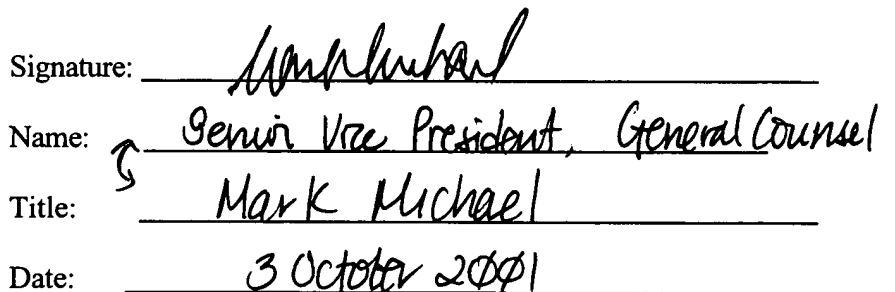 Signature:
Name: Senior Vice President, General Counsel
Title: Mark Michael
Date: 3 October 2001